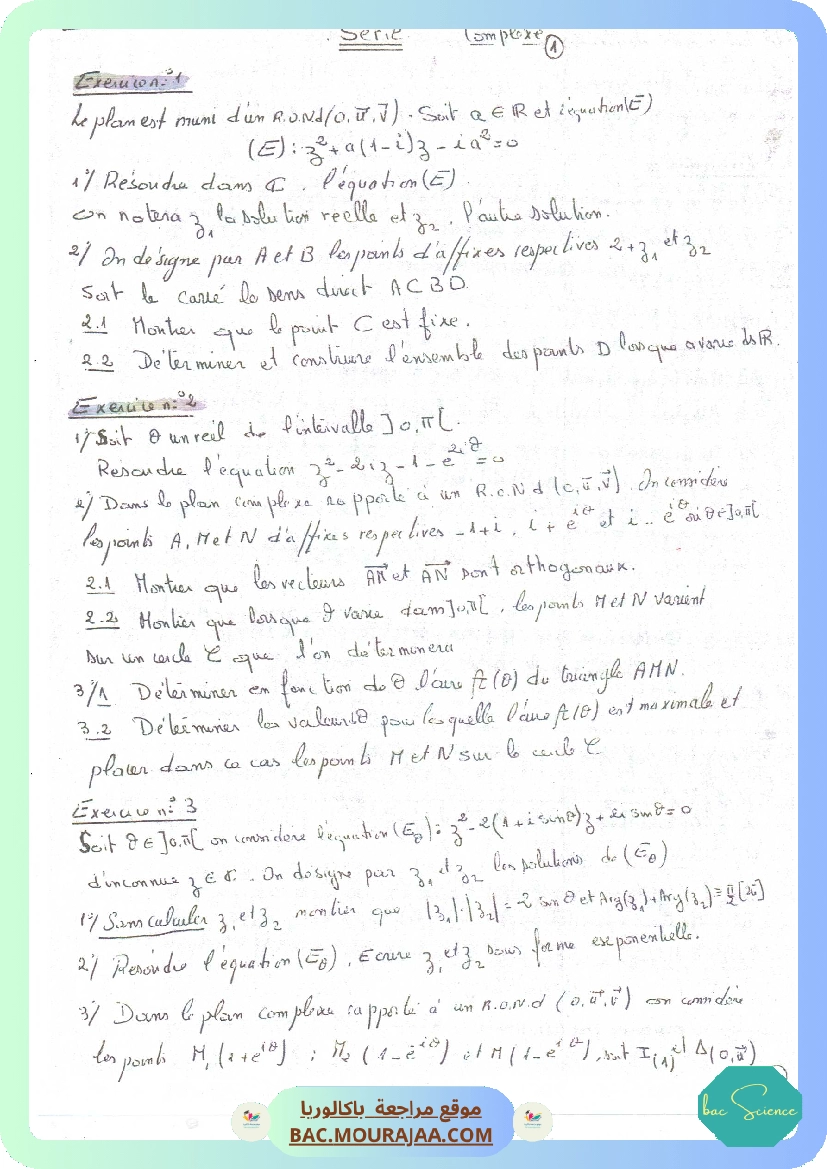 Serie Complexe ①
Exercice n°1
Le plan est muni d'un R.O.Nd(O,u⃗,v⃗). Soit a ∈ ℝ et l'équation(E)
(E): z²+a(1-i)z-ia²=0
1°/ Résoudre dans ℂ. l'équation(E).
on notera z₁ la solution reelle et z₂, l'autre solution.
2°/ On désigne par A et B les points d'affixes respectives 2+z₁ et z₂
Soit le carré de sens direct ACBD.
2.1 Montrer que le point C est fixe.
2.2 Déterminer et construire l'ensemble des points D lorsque a varie ds ℝ.
Exercice n°2
1°/ Soit θ un réel de l'intervalle ]0,π[.
Resoudre l'équation z²-2iz-1-e^{2iθ}=0
2/ Dans le plan complexe rapporté à un R.O.N.d (O,u⃗,v⃗). On considère
les points A, M et N d'affixes respectives -1+i, i+e^{iθ} et i-e^{iθ} où θ∈]0,π[
2.1 Montrer que les vecteurs AM⃗ et AN⃗ sont orthogonaux.
2.2 Montrer que lorsque θ varie dans ]0,π[, les points M et N varient
sur un cercle C que l'on déterminera
3/1 Déterminer en fonction de θ l'aire A(θ) du triangle AMN.
3.2 Déterminer les valeurs θ pour lesquelle l'aire A(θ) est maximale et
placer dans ce cas les points M et N sur le cercle C
Exercice n° 3
Soit θ∈]0,π[ on considère l'équation(E_θ): z²-2(1+i sinθ)z+2i sinθ=0
d'inconnue z∈ℂ. On désigne par z₁ et z₂ les solutions de (E_θ)
1°/ Sans calculer z₁ et z₂ montrer que |z₁|.|z₂|=2 sinθ et Arg(z₁)+Arg(z₂)≡π/2[2π]
2°/ Resoudre l'équation(E_θ). Ecrire z₁ et z₂ sous forme exponentielle.
3°/ Dans le plan complexe rapporté à un R.O.N.d (O,u⃗,v⃗) on considère
les points M₁(1+e^{iθ}); M₂(1-e^{-iθ}) et M(1-e^{iθ}), soit I(1) et Δ(O,u⃗)
موقع مراجعة باكالوريا
BAC.MOURAJAA.COM
bac Science